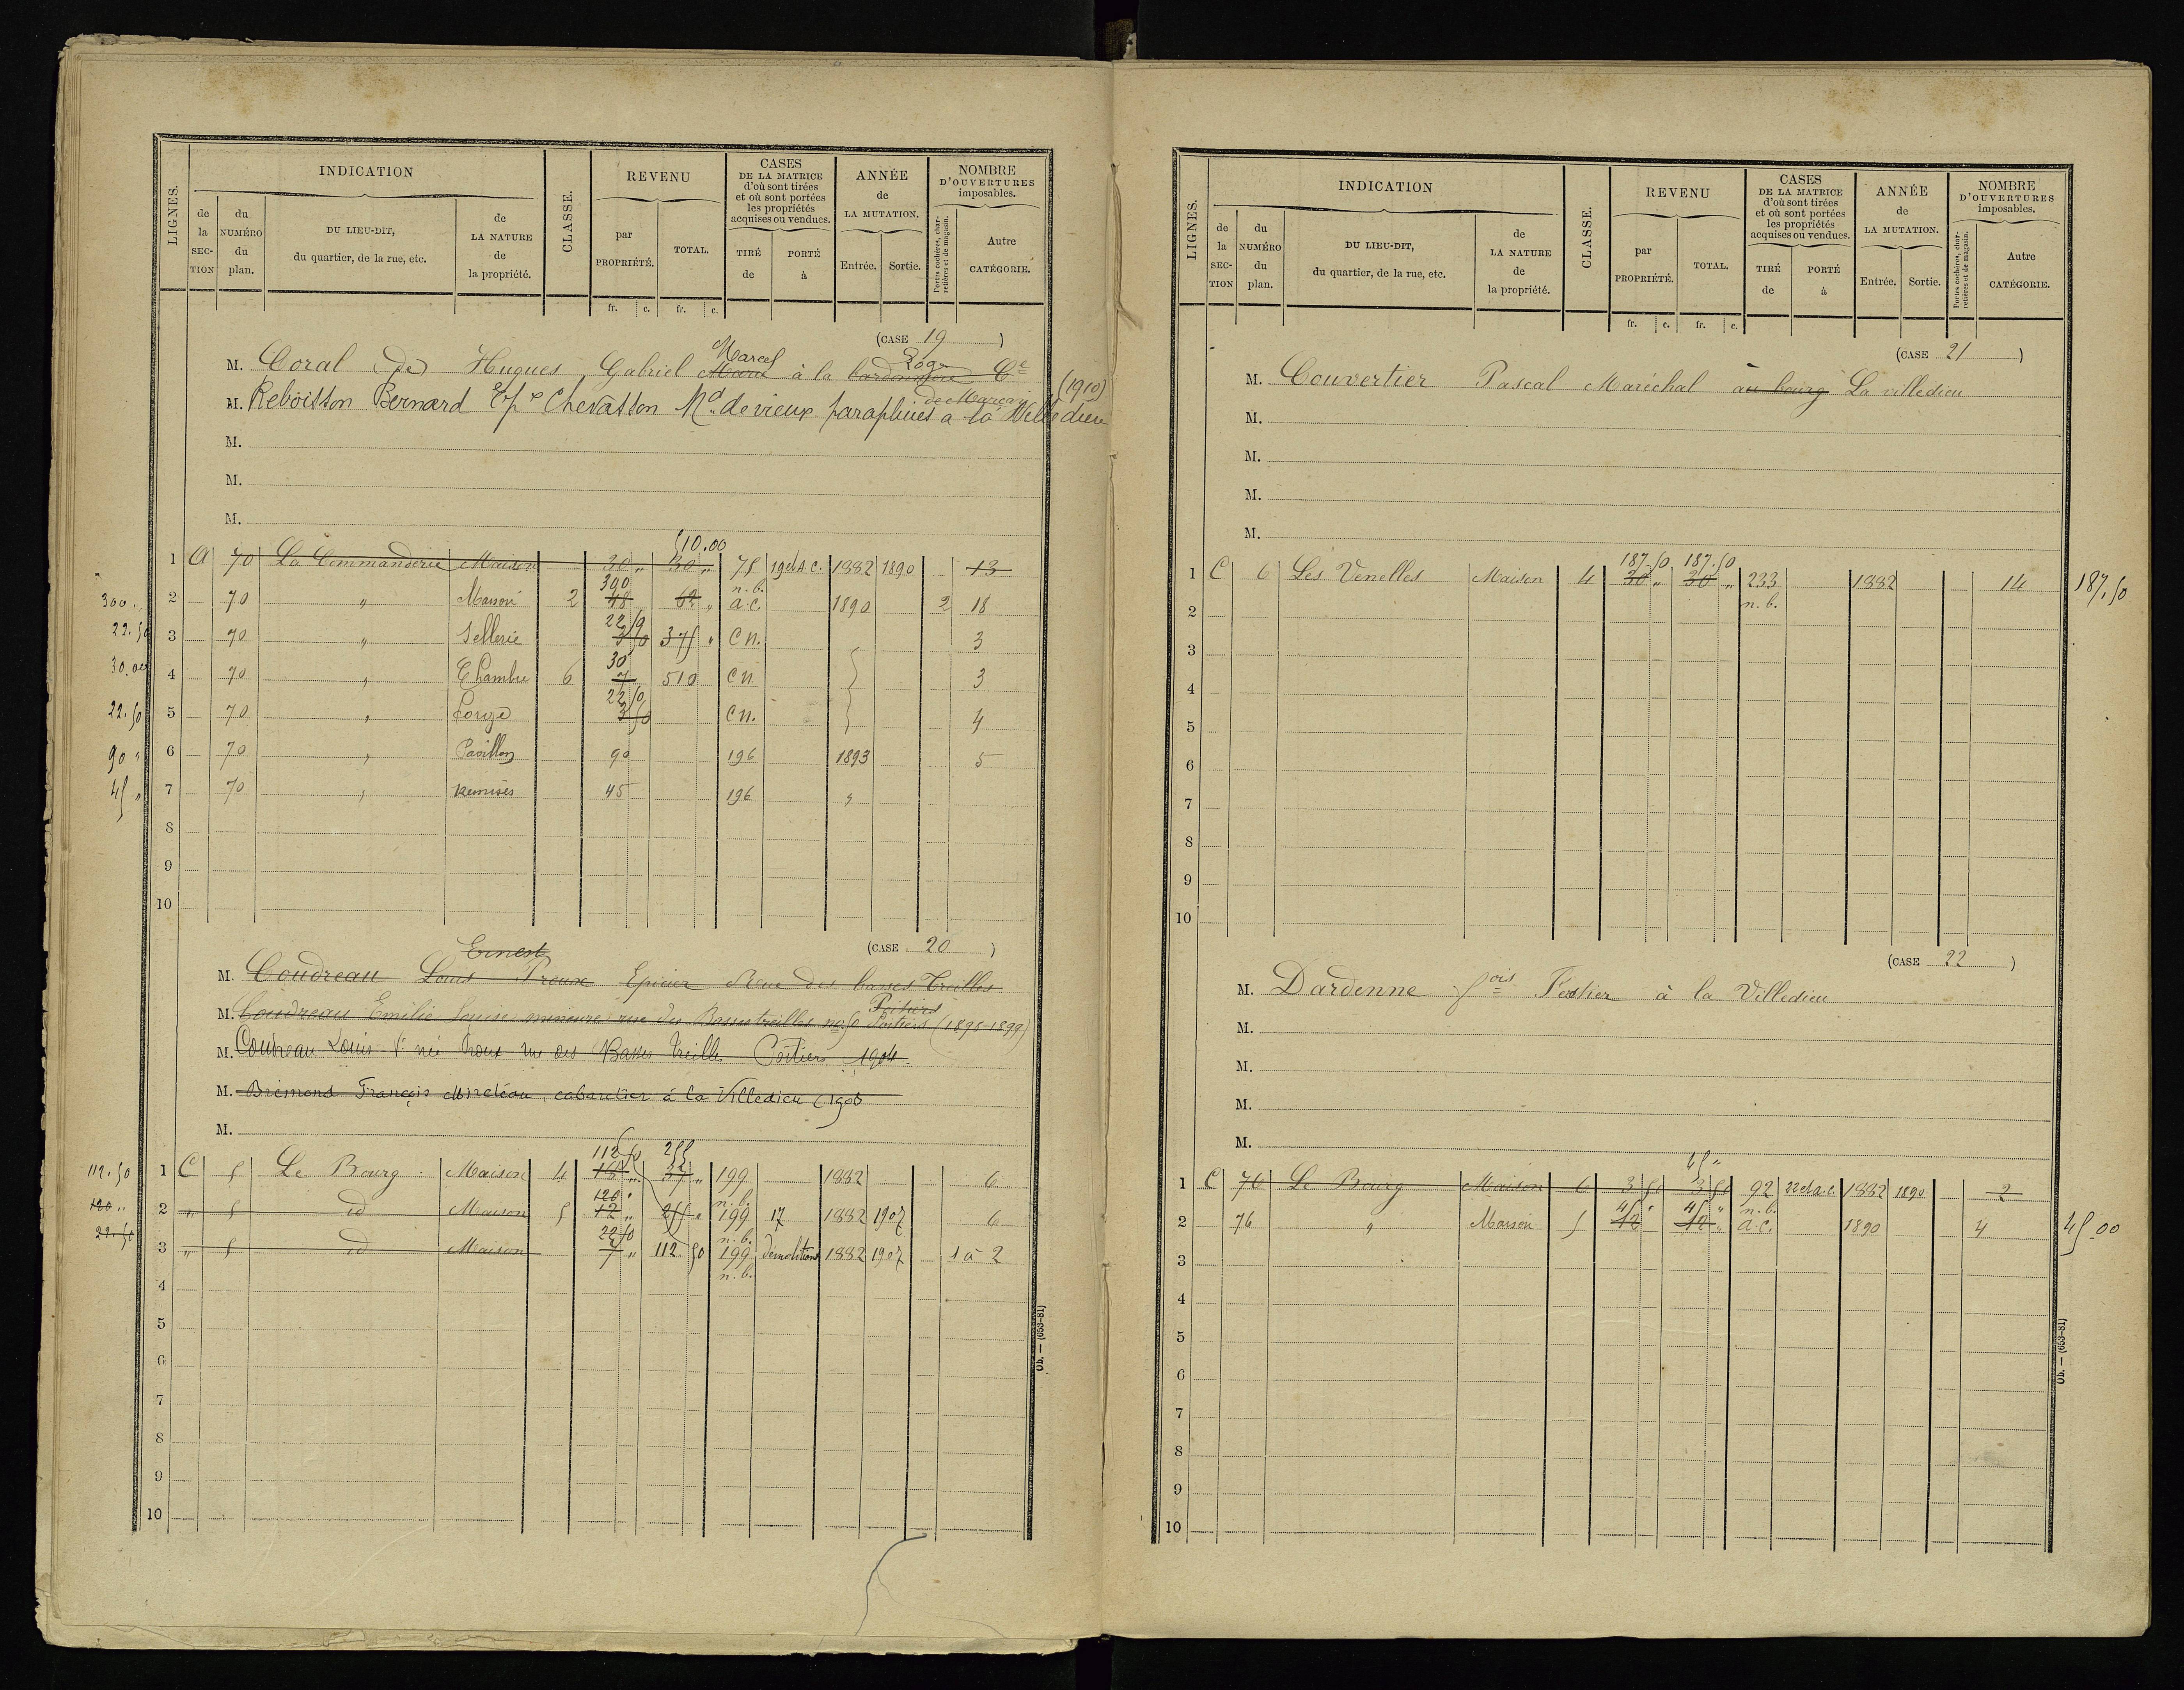 LIGNES.
INDICATION
de la SECTION
du NUMÉRO du plan.
DU LIEU-DIT, du quartier, de la rue, etc.
de LA NATURE de la propriété.
CLASSE.
REVENU
par PROPRIÉTÉ.
TOTAL.
fr. c. fr. c.
CASES DE LA MATRICE d'où sont tirées et où sont portées les propriétés acquises ou vendues.
TIRÉ de
PORTÉ à
ANNÉE de LA MUTATION.
Entrée. Sortie.
NOMBRE D'OUVERTURES imposables.
Portes cochères, charretières et de magasin.
Autre CATÉGORIE.
(CASE 19)
Marcel
M. Coral (de) Hugues Gabriel à la
M. Reboisson Bernard Chevasson Md. de vieux parapluies à la Villedieu (1910)
M.
M.
M.
510.00
1 A 70 La Commanderie Maison 30 " 30 " 75 19 et A.C. 1882 1890 13
n.b.
300.. 2 70 " Maison 2 300 48 62 " a.c. 1890 2 18
22.50 3 70 " Sellerie 22 50 3 50 375 " C N. 3
30.00 4 70 " Chambre 6 30 7 510 C N 3
22.50 5 70 " Forge 22 50 3 50 C N. 4
90 " 6 70 " Pavillon 90 196 1893 5
45 " 7 70 " Remises 45 196 "
8
9
10
(CASE 20)
Ernest
M. Coudreau Louis Proux Epicier Rue des basses Treilles
Poitiers
M. Coudreau Emilie Louise mineure rue des Basses treilles no 50 Poitiers (1895-1899)
M. Coudreau Louis Ve née Proux rue des Basses Treilles Poitiers 1904
M. Brémond François Mireteau cabaretier à la Villedieu (1906
M.
112 50 255
112.50 1 C 5 Le Bourg Maison 4 18 " 37 " 199 1882 6
n.b.
120 .. 2 " 5 id Maison 5 120 12 " 255 " 199 17 1882 1907 6
n.b.
22.50 3 " 5 id Maison 22 50 7 " 112 50 199 démolition 1882 1907 1 à 2
n.b.
4
5
6
7
8
9
10
Ob. — (653-81)
LIGNES.
INDICATION
de la SECTION
du NUMÉRO du plan.
DU LIEU-DIT, du quartier, de la rue, etc.
de LA NATURE de la propriété.
CLASSE.
REVENU
par PROPRIÉTÉ.
TOTAL.
fr. c. fr. c.
CASES DE LA MATRICE d'où sont tirées et où sont portées les propriétés acquises ou vendues.
TIRÉ de
PORTÉ à
ANNÉE de LA MUTATION.
Entrée. Sortie.
NOMBRE D'OUVERTURES imposables.
Portes cochères, charretières et de magasin.
Autre CATÉGORIE.
(CASE 21)
M. Couvertier Pascal Maréchal au bourg La villedieu
M.
M.
M.
M.
187.50 187.50
1 C 6 Les Venelles Maison 4 30 " 30 " 233 1882 14 187,50
n.b.
2
3
4
5
6
7
8
9
10
(CASE 22)
M. Dardenne fois à la Villedieu
M.
M.
M.
M.
1 C 76 Le Bourg Maison 6 3 50 3 50 92 22 et a.c. 1882 1890 2
45 " 45 " n.b.
2 76 " Maison 5 12 12 " a.c. 1890 4 45.00
3
4
5
6
7
8
9
10
Ob. — (653-81)